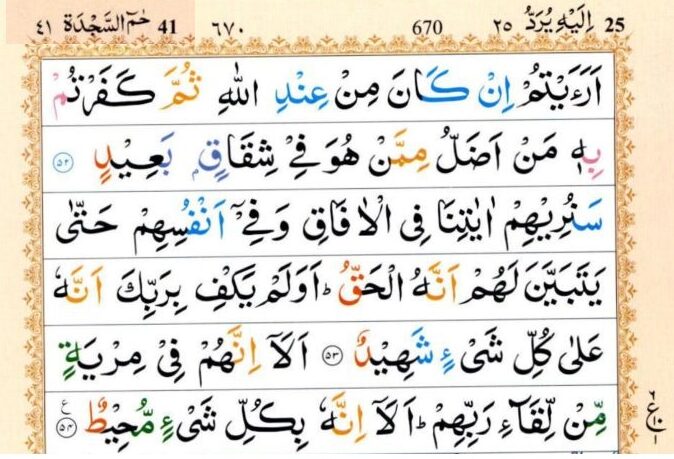 ٤١ حٰمٓ السَّجْدَة 41 ٦٧٠ 670 ٢٥ اِلَيْهِ يُرَدُّ 25
اَرَءَيْتُمْ اِنْ كَانَ مِنْ عِنْدِ اللّٰهِ ثُمَّ كَفَرْتُمْ
بِهٖ مَنْ اَضَلُّ مِمَّنْ هُوَ فِيْ شِقَاقٍۭ بَعِيْدٍ ۝٥٢
سَنُرِيْهِمْ اٰيٰتِنَا فِى الْاٰفَاقِ وَفِيْٓ اَنْفُسِهِمْ حَتّٰى
يَتَبَيَّنَ لَهُمْ اَنَّهُ الْحَقُّ ؕ اَوَلَمْ يَكْفِ بِرَبِّكَ اَنَّهٗ
عَلٰى كُلِّ شَىْءٍ شَهِيْدٌ ۝٥٣ اَلَاۤ اِنَّهُمْ فِيْ مِرْيَةٍ
مِّنْ لِّقَآءِ رَبِّهِمْ ؕ اَلَاۤ اِنَّهٗ بِكُلِّ شَىْءٍ مُّحِيْطٌ ۝٥٤ ع
٦
ع
١٠
١